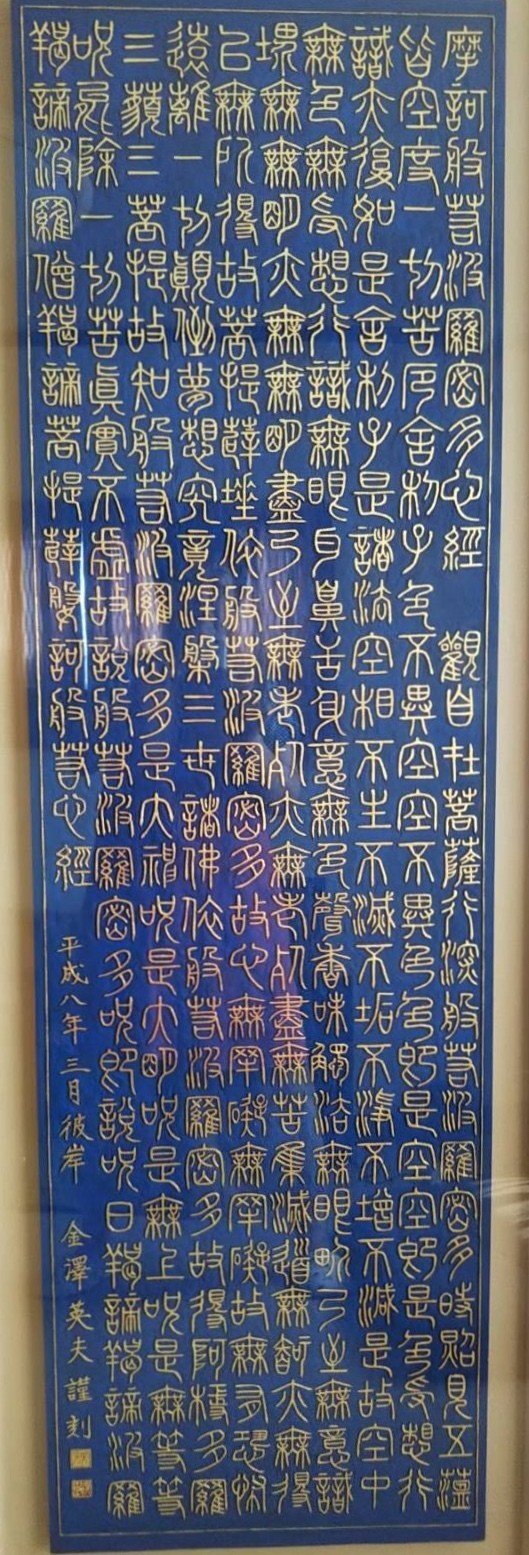 摩訶般若波羅蜜多心經　觀自在菩薩行深般若波羅蜜多時照見五蘊
皆空度一切苦厄舍利子色不異空空不異色色即是空空即是色受想行
識亦復如是舍利子是諸法空相不生不滅不垢不淨不增不減是故空中
無色無受想行識無眼耳鼻舌身意無色聲香味觸法無眼界乃至無意識
界無無明亦無無明盡乃至無老死亦無老死盡無苦集滅道無智亦無得
以無所得故菩提薩埵依般若波羅蜜多故心無罣礙無罣礙故無有恐怖
遠離一切顛倒夢想究竟涅槃三世諸佛依般若波羅蜜多故得阿耨多羅
三藐三菩提故知般若波羅蜜多是大神呪是大明呪是無上呪是無等等
呪能除一切苦眞實不虛故說般若波羅蜜多呪即說呪曰羯諦羯諦波羅
羯諦波羅僧羯諦菩提薩婆訶般若心經
平成八年三月彼岸　金澤英夫謹刻